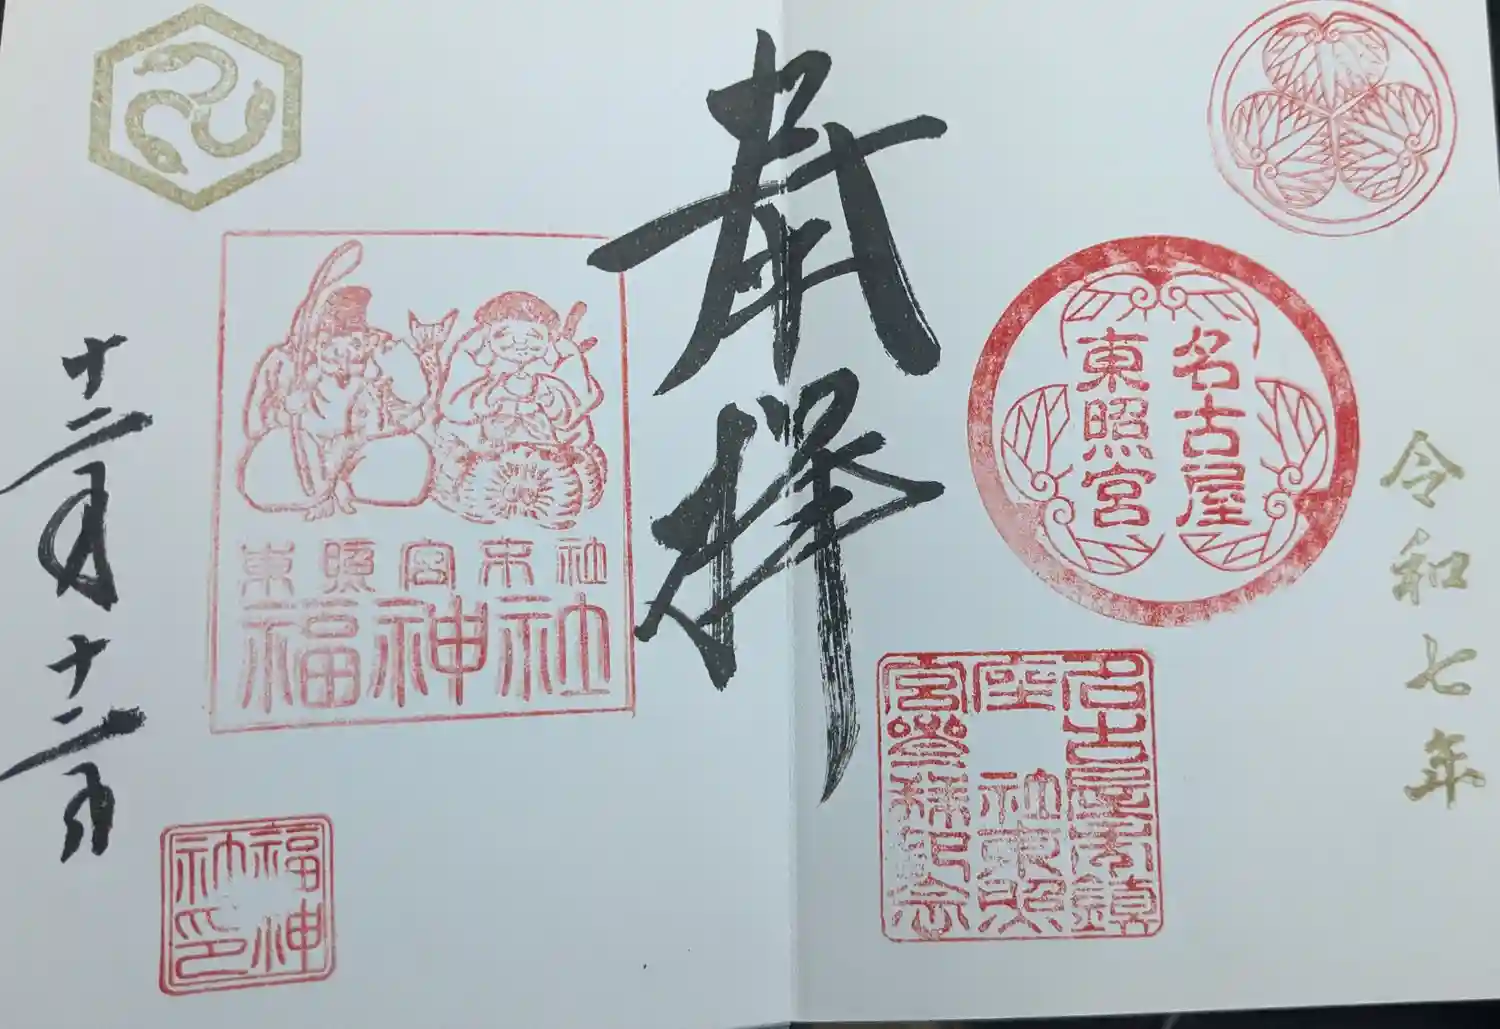 令和七年
名古屋
東照宮
名古屋鎮
座社東照
宮参拝記念
奉拝
東照宮末社
福神社
福神
社印
十二月十二日